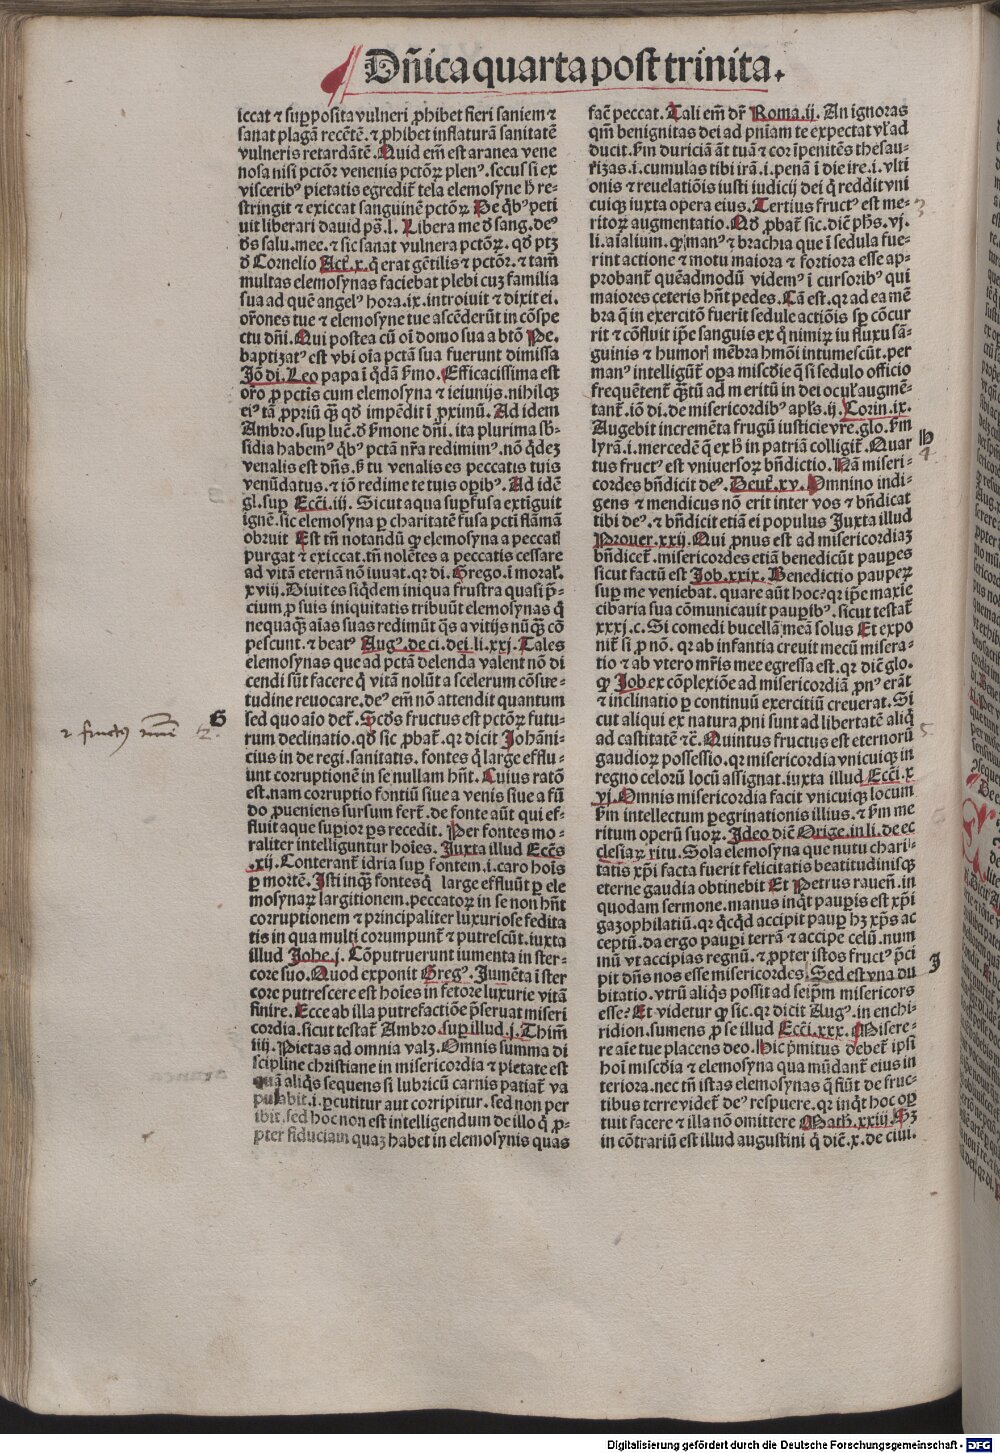 Dñica quarta post trinita.
iccat ⁊ supposita vulneri ꝓhibet fieri saniem ⁊
sanat plagã recẽtẽ. ⁊ ꝓhibet inflaturã sanitatẽ
vulneris retardãtẽ. Quid em̃ est aranea vene
nosa nisi pctõr venenis pctõꝝ plenꝰ. secus si ex
visceribꝰ pietatis egredit̃ tela elemosyne h̃ re-
stringit ⁊ exiccat sanguinẽ pctõꝝ De q̃bꝰ peti
uit liberari dauid ps̃. l. Libera me d̃ sang. deꝰ
dꝰs salu. mee. ⁊ sic sanat vulnera pctõꝝ. qd̃ ptꝫ
d̃ Cornelio Act̃. x. q̃ erat gẽtilis ⁊ pctõr. ⁊ tam̃
multas elemosynas faciebat plebi cuꝫ familia
sua ad quẽ angelꝰ hora. ix. introiuit ⁊ dixit ei.
or̃ones tue ⁊ elemosyne tue ascẽderũt in cõspe
ctu dñi. Qui postea cũ oĩ domo sua a btõ Pe.
baptizatꝰ est vbi oĩa pctã sua fuerunt dimissa
Jõ di. Leo papa ĩ q̃dã s̃mo. Efficacissima est
or̃o ꝓ pctĩs cum elemosyna ⁊ ieiunijs. nihilqꝫ
eiꝰ tã ꝓpriũ qꝫ̃ qd̃ impẽdit ĩ ꝓximũ. Ad idem
Ambro. sup luc̃. d̃ s̃mone dñi. ita plurima sb̃-
sidia habemꝰ q̃bꝰ pctã nr̃a redimimꝰ. nõ q̃deꝫ
venalis est dñs. s̃ tu venalis es peccatis tuis
venũdatus. ⁊ iõ redime te tuis oꝑibꝰ. Ad idẽ
gl. sup Ecc̃i. iii. Sicut aqua supfusa extiguit
ignẽ. sic elemosyna ꝑ charitatẽ fusa pcti flãmã
obruit Est tñ notandũ ꝙ elemosyna a peccat̃
purgat ⁊ exiccat. tñ nolẽtes a peccatis cessare
ad vitã eternã nõ iuuat. qr di. Grego. ĩ moral̃.
xviii. Diuites siq̃dem iniqua frustra quasi p̃-
cium ꝓ suis iniquitatis tribuũt elemosynas q̃
nequaqꝫ̃ aĩas suas redimũt q̃s a vitijs nũqꝫ̃ cõ
pescunt. ⁊ beatꝰ Augꝰ. de ci. dei. li. xxj. Tales
elemosynas que ad pctã delenda valent nõ di
cendi sũt facere q̃ vitã nolũt a scelerum cõsue-
tudine reuocare. deꝰ em̃ nõ attendit quantum
sed quo aĩo det̃. Scd̃s fructus est pctõꝝ futu-
rum declinatio. qd̃ sic ꝓbat̃. qr dicit Johãni-
cius in de regi. sanitatis. fontes q̃ large efflu-
unt corruptionẽ in se nullam hñt. Cuius ratõ
est. nam corruptio fontiũ siue a venis siue a fũ
do ꝓueniens sursum fert̃. de fonte aũt qui ef-
fluit aque supior ps recedit. Per fontes mo-
raliter intelliguntur hoĩes. Juxta illud Ecc̃s
.xij. Conterant̃ idria sup fontem. i. caro hoĩs
ꝑ mortẽ. Isti inqꝫ̃ fontes q̃ large effluũt ꝑ ele
mosynaꝝ largitionem. peccatoꝝ in se non hñt
corruptionem ⁊ principaliter luxuriose fedita
tis in qua multi corumpunt̃ ⁊ putrescũt. iuxta
illud Johe. j. Cõputruerunt iumenta in ster-
core suo. Quod exponit Gregꝰ. Jumẽta ĩ ster
core putrescere est hoĩes in fetore luxurie vitã
finire. Ecce ab illa putrefactiõe p̃seruat miseri
cordia. sicut testat̃ Ambro. sup illud. j. Thim̃
iiij. Pietas ad omnia valꝫ. Omnis summa di
scipline christiane in misericordia ⁊ pietate est
quã aliq̃s sequens si lubricũ carnis patiat̃ va
pulabit. i. ꝑcutitur aut corripitur. sed non per
ibit. sed hoc non est intelligendum de illo q̃ ꝓ-
pter fiduciam quaꝫ habet in elemosynis quas
⁊ fructꝰ
G
2.
fac̃ peccat. Tali em̃ dr̃ Roma. ij. An ignoras
qm̃ benignitas dei ad pniam te expectat vl̃ ad
ducit. s̃m duriciã ãt tuã ⁊ cor ĩpenitẽs thesau-
r̃izas. i. cumulas tibi irã. i. penã ĩ die ire. i. vlti
onis ⁊ reuelatiõis iusti iudicij dei q̃ reddit vni
cuiqꝫ iuxta opera eius. Tertius fructꝰ est me-
ritoꝝ augmentatio. Qd̃ ꝓbat̃ sic. dic̃ ph̃s. vj.
li. aĩalium. ꝙ manꝰ ⁊ brachia que ĩ sedula fue-
rint actione ⁊ motu maiora ⁊ fortiora esse ap-
probant̃ queadmodũ videmꝰ ĩ cursoribꝰ qui
maiores ceteris hñt pedes. Cã est. qr ad ea mẽ
bra q̃ in exercitõ fuerit sedule actiõis sp cõcur
rit ⁊ cõfluit ip̃e sanguis ex q̃ nimiꝝ iu fluxu sã-
guinis ⁊ humoꝝ mẽbra hmõi intumescũt. per
manꝰ intelligũt̃ opa misc̃die q̃ si sedulo officio
frequẽtent̃ qꝫ̃tũ ad meritũ in dei ocul̃ augmẽ-
tant̃. iõ di. de misericordibꝰ apl̃s. ij. Corin. ix.
Augebit incremẽta frugũ iusticie vr̃e. glo. s̃m
lyrã. i. mercedẽ q̃ exh̃ in patriã colligit̃. Quar
tus fructꝰ est vniuersoꝝ bñdictio. Nã miseri-
cordes bñdicit deꝰ. Deut̃. xv. Omnino indi-
gens ⁊ mendicus nõ erit inter vos ⁊ bñdicat
tibi deꝰ. ⁊ bñdicit etiã ei populus Juxta illud
Prouer. xxij. Qui ꝓnus est ad misericordiaꝫ
bñdicet̃. misericordes etiã benedicũt pauꝑes
sicut factũ est Job. xxix. Benedictio pauꝑꝝ
sup me veniebat. quare aũt hoc? qr ip̃e maxie
cibaria sua cõmunicauit pauꝑibꝰ. sicut testat̃
xxxj. c. Si comedi bucellã meã solus Et expo
nit̃ si ꝓ nõ. qr ab infantia creuit mecũ misera-
tio ⁊ ab vtero mr̃is mee egressa est. qr dic̃ glo.
ꝙ Job ex cõplexiõe ad misericordiã ꝓnꝰ erat̃
⁊ inclinatio ꝑ continuũ exercitiũ creuerat. Si
cut aliqui ex natura ꝓni sunt ad libertatẽ aliq̃
ad castitatẽ ⁊c̃. Quintus fructus est eternorũ
gaudioꝝ possessio. qr misericordia vnicuiqꝫ in
regno celorũ locũ assignat. iuxta illud Ecc̃i. x
vj. Omnis misericordia facit vnicuiqꝫ locum
s̃m intellectum ꝑegrinationis illius. ⁊ s̃m me
ritum operũ suoꝝ. Ideo dic̃ Orige. in li. de ec
clesiaꝝ ritu. Sola elemosyna que nutu chari-
tatis xp̃i facta fuerit felicitatis beatitudinisqꝫ
eterne gaudia obtinebit Et Petrus rauen̄. in
quodam sermone. manus inq̃t pauꝑis est xp̃i
gazophilatiũ. qr q̃cq̃d accipit pauꝑ hꝫ xp̃s ac
ceptũ. da ergo pauꝑi terrã ⁊ accipe celũ. num
mũ vt accipias regnũ. ⁊ ꝓpter istos fructꝰ p̃ci
pit dñs nos esse misericordes. Sed est vna du
bitatio. vtrũ aliq̃s possit ad seip̃m misericors
esse? Et videtur ꝙ sic. qr dicit Augꝰ. in enchi-
ridion. sumens ꝓ se illud Ecc̃i. xxx. Misere-
re aĩe tue placens deo. Hic p̃mitus debet̃ ipsi
hoĩ misc̃dia ⁊ elemosyna qua mũdant̃ eius in
teriora. nec tñ istas elemosynas q̃ fiũt de fruc-
tibus terre videt̃ deꝰ respuere. qr inq̃t hoc oꝑ
tuit facere ⁊ illa nõ omittere Math̃. xxiij. Sꝫ
in cõtrariũ est illud augustini q̃ dic̃. x. de ciui.
3
H
4
5
J
Digitalisierung gefördert durch die Deutsche Forschungsgemeinschaft - DFG